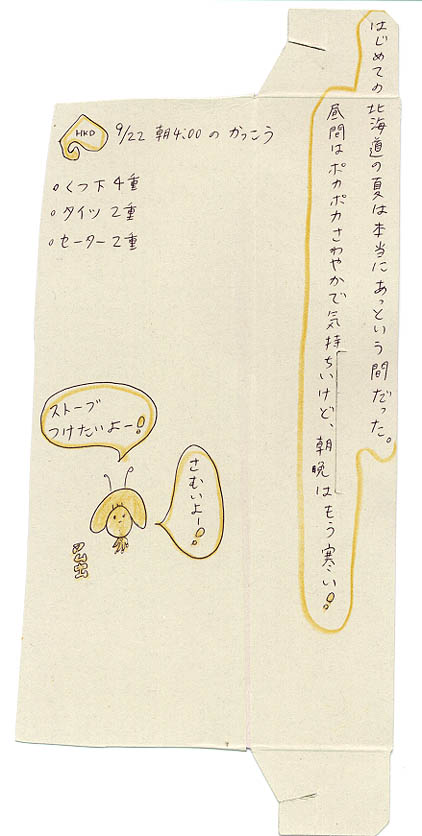 はじめての北海道の夏は本当にあっという間だった。
昼間はポカポカさわやかで気持ちいいけど、朝晩はもう寒い!
HKD
9/22 朝4:00 の かっこう
・くつ下 4重
・タイツ 2重
・セーター 2重
ストーブ
つけたいよー!
さむいよー!